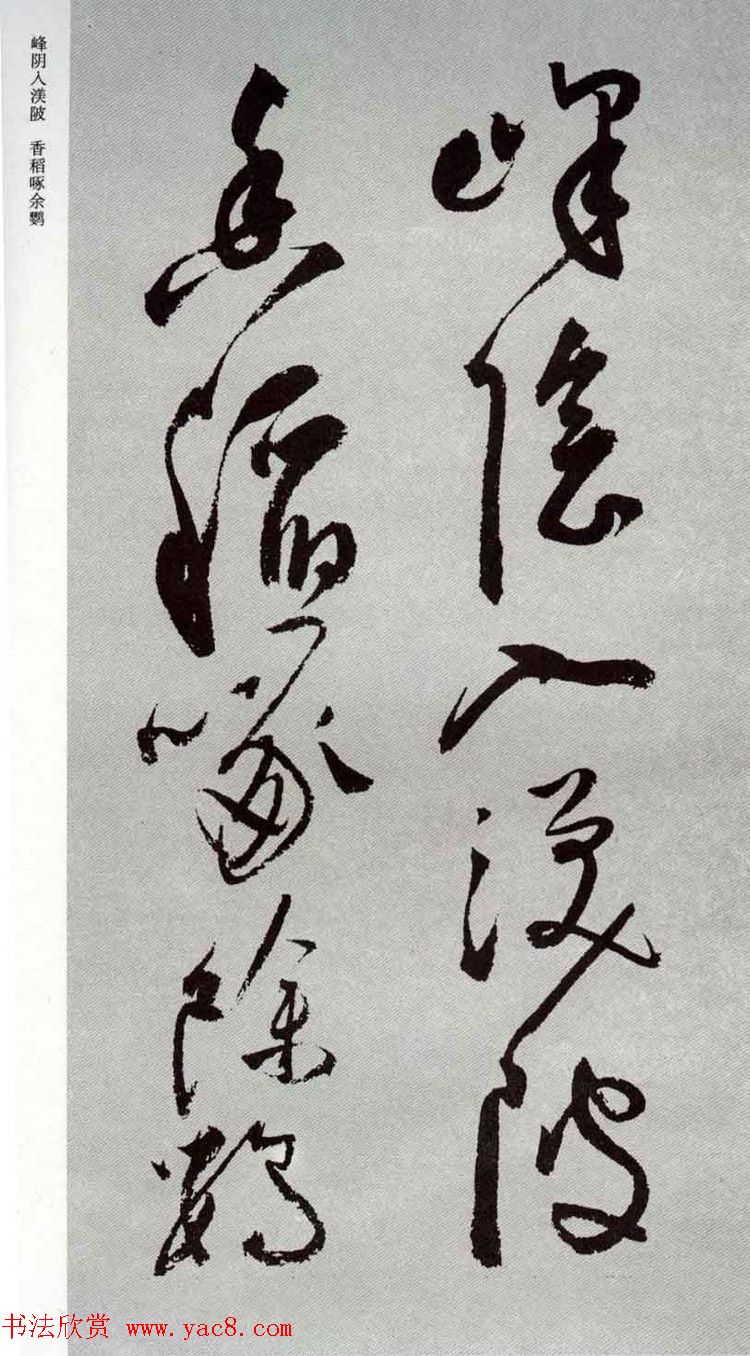 峰陰入渼陂
香稻啄除鸚
峰阴入渼陂 香稻啄余鹦
书法欣赏 www.yac8.com